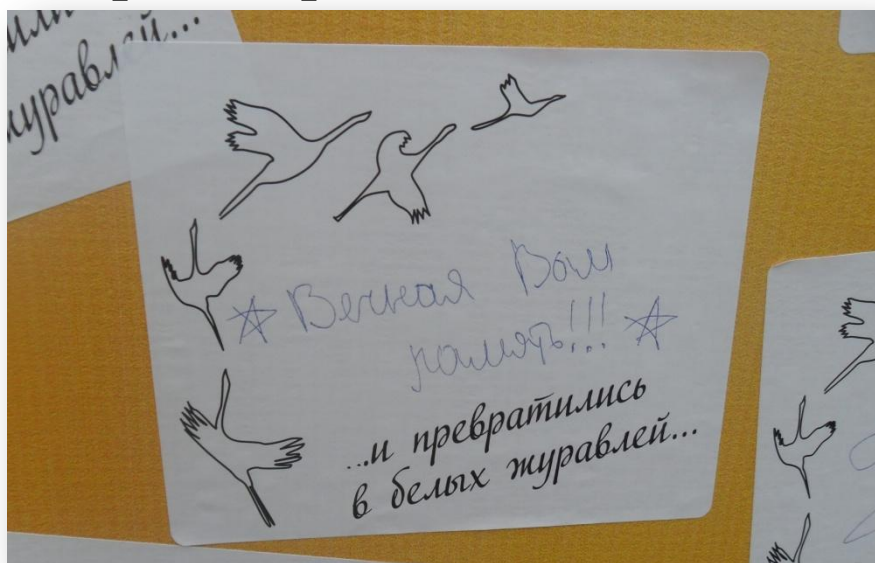 журавлей...
Вечная Вам
память!!!
...и превратились
в белых журавлей...